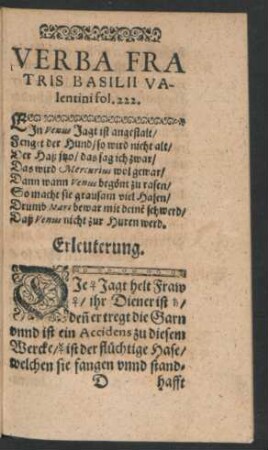 VERBA FRA
TRIS BASILII VA-
lentini fol. 222.
EIn Venus Jagt ist angestalt/
Fenget der Hund/ so wird nicht alt/
Der Haß itzo/ das sag ich zwar/
Das wird Mercurius wol gewar/
Dann wann Venus begönt zu rasen/
So macht sie grausam viel Hasen/
Drumb Mars bewar mit deinē schwerd/
Daß Venus nicht zur Huren werd.
Erleuterung.
DIe ♀ Jagt helt Fraw
♀/ ihr Diener ist ♄/
deñ er tregt die Garn
vnnd ist ein Accidens zu diesem
Wercke/ ☿ ist der flüchtige Hase/
welchen sie fangen vnnd stand-
D hafft